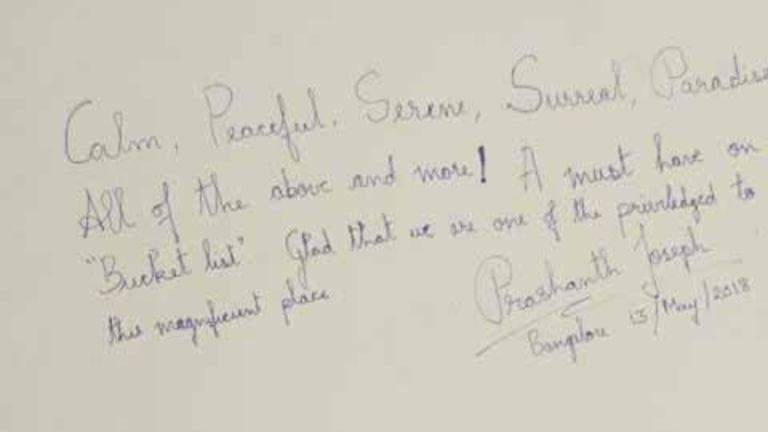 Calm, Peaceful, Serene, Surreal, Paradise
All of the above and more! A must have on
"Bucket list" Glad that we are one of the priviledged to
this magnificient place
Prashanth Joseph
Banglore 13/May/2018